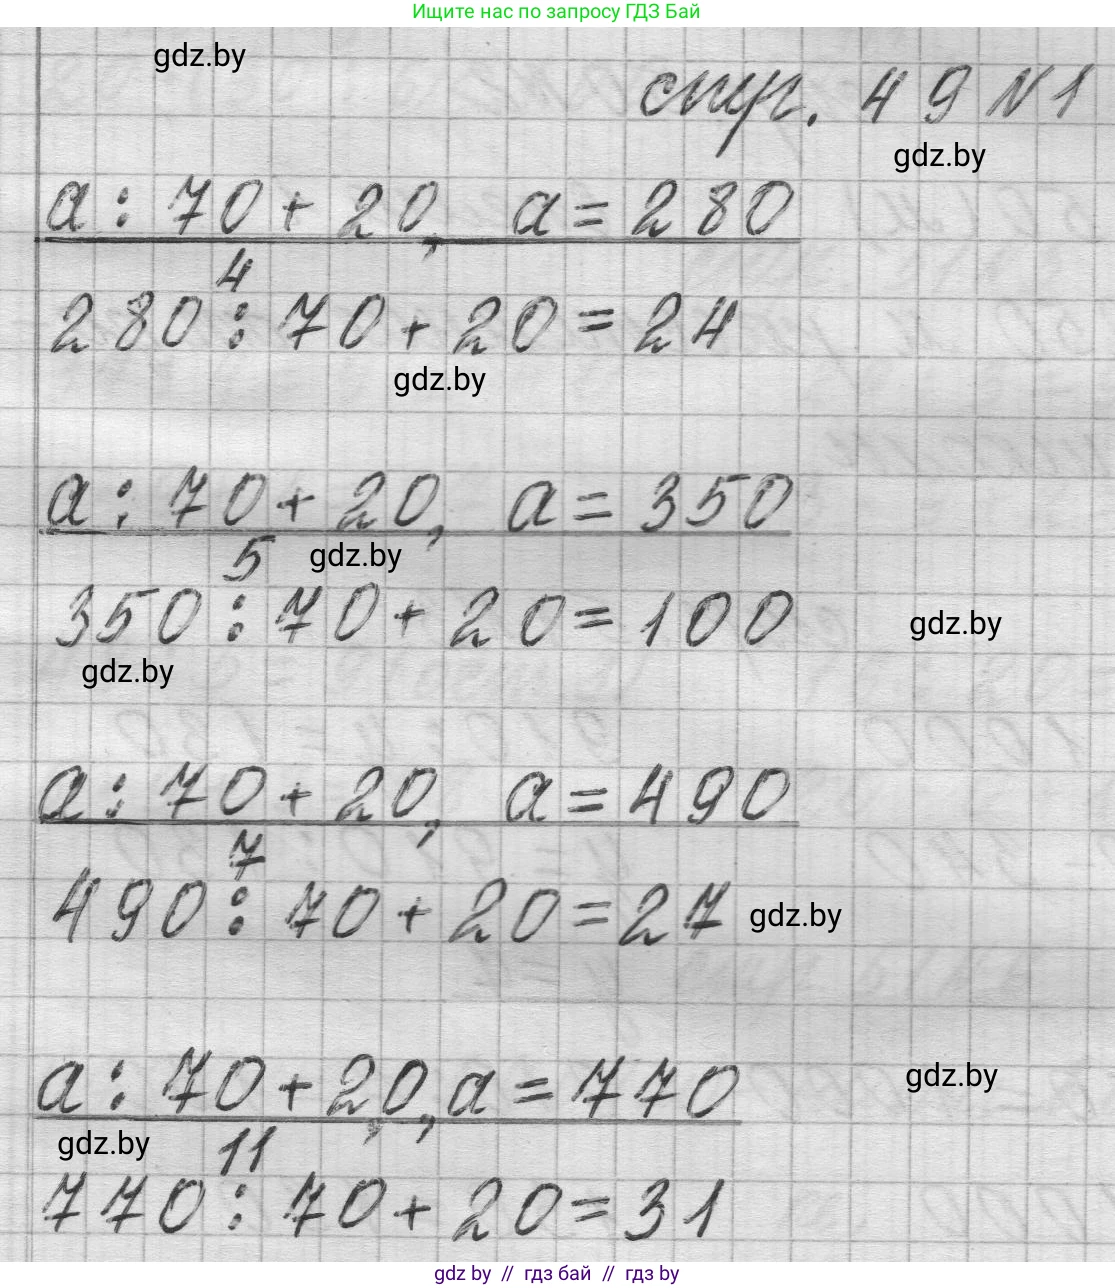 Ищите нас по запросу ГДЗ Бай
gdz.by
стр. 49 №1
gdz.by
a : 70 + 20, a = 280
4
280 : 70 + 20 = 24
gdz.by
a : 70 + 20, a = 350
5
gdz.by
350 : 70 + 20 = 100
gdz.by
gdz.by
a : 70 + 20, a = 490
7
490 : 70 + 20 = 27
gdz.by
a : 70 + 20, a = 770
gdz.by
gdz.by
11
770 : 70 + 20 = 31
gdz by // гдз бай // гдз by